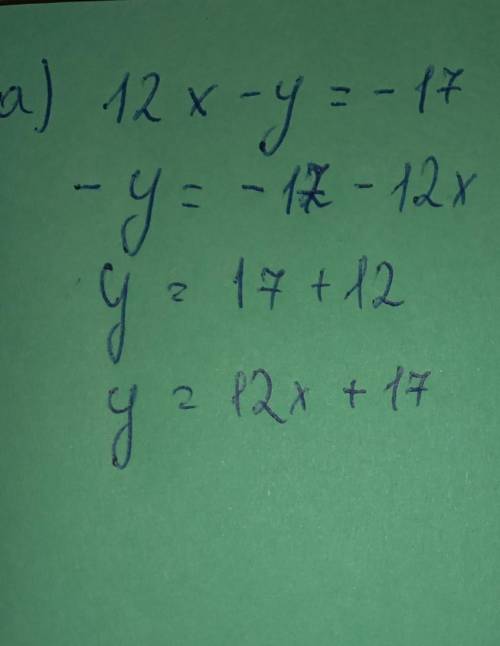 а) 12x - y = - 17
- y = - 17 - 12x
y = 17 + 12
y = 12x + 17